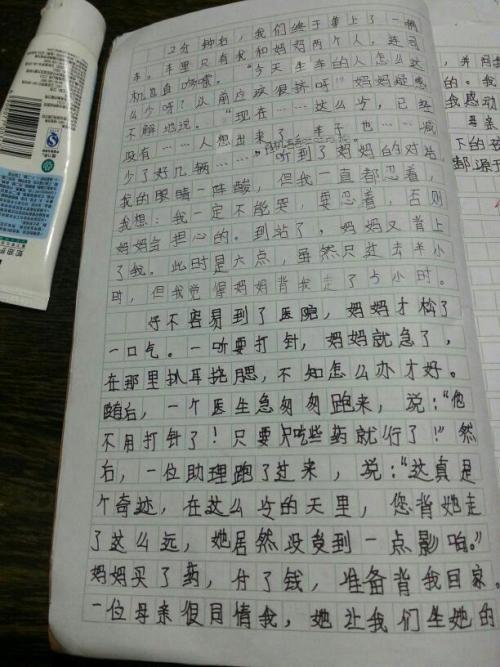 2分钟后，我们终于等上了一辆
车。车里只有我和妈妈两个人，连司
机直直哆嗦。“今天坐车的人怎么这
么少呀？以前应该很挤呀！”妈妈疑惑
不解地说。“现在……这么冷，已经
没有……人想出来了，车子也……减
少了好几辆……”听到了妈妈的对话，
我的眼睛一阵酸，但我一直都忍着，
我想：我一定不能哭，要忍着，否则
妈妈会担心的。到站了，妈妈又背上
了我。此时是六点，虽然只过去半小
时，但我觉得妈妈背我走了5小时。
好不容易到了医院，妈妈才松了
一口气。一听要打针，妈妈就急了，
在那里扒耳挠腮，不知怎么办才好。
随后，一个医生急匆匆跑来，说：“她
不用打针了！只要只吃些药就行了！”然
后，一位助理跑了过来，说：“这真是
个奇迹，在这么冷的天里，您背她走
了这么远，她居然没受到一点影响。”
妈妈买了药，付了钱，准备背我回家。
一位母亲很同情我，她让我们坐她的
，并用
的。我
我感动
母亲
下的孩
都源于